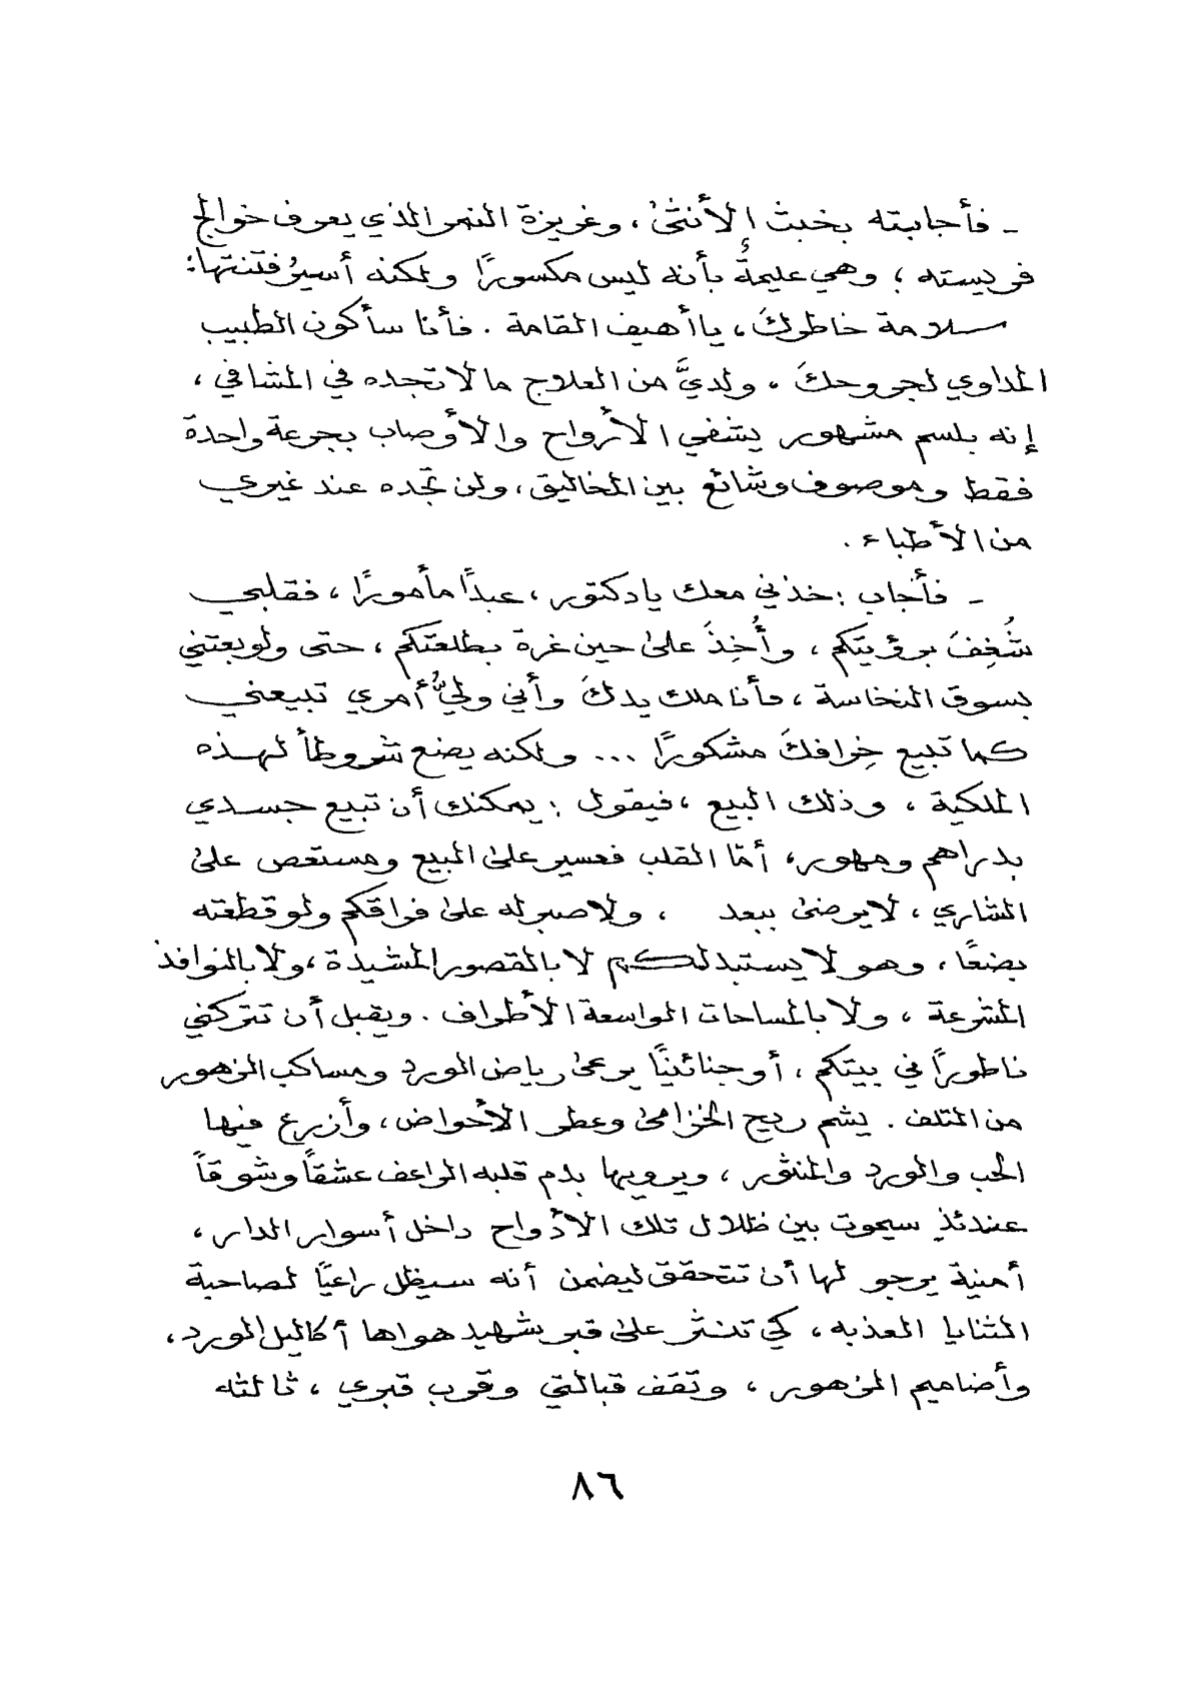 - فأجابته بخبث الأنثىٰ ، وغريزة النمر الذي يعرف خوالج
فريسته ؛ وهي عليمةٌ بأنه ليس مكسورًا ولكنه أسيرُ فتنتها:
سلامة خاطركَ ، يا أهيف القامة . فأنا سأكون الطبيب
المداوي لجروحكَ ، ولديَّ من العلاج ما لا تجده في المشافي ،
إنه بلسم مشهور يشفي الأرواح والأوصاب بجرعة واحدة
فقط وموصوف وشائع بين المخاليق ، ولن تجده عند غيري
من الأطباء .
- فأجاب : خذني معك يا دكتور ، عبدًا مأمورًا ، فقلبي
شُغِفَ برؤيتكم ، وأُخِذَ علىٰ حين غرة بطلعتكم ، حتى ولو بعتني
بسوق النخاسة ، فأنا ملك يدكَ وأني وليُّ أمري تبيعني
كما تبيع خِرافكَ مشكورًا ... ولكنه يضع شروطاً لهذه
الملكية ، وذلك البيع ، فيقول : يمكنك أن تبيع جسدي
بدراهم ومهور ، أمّا القلب فعسير علىٰ المبيع ومستعص علىٰ
الشاري ، لا يرضىٰ ببعد ، ولا صبر له علىٰ فراقكم ولو قطعته
بضعًا ، وهو لا يستبدلكم لا بالقصور المشيدة ، ولا بالنوافذ
المشرعة ، ولا بالمساحات الواسعة الأطراف . ويقبل أن تتركني
ناطورًا في بيتكم ، أو جنائنيًا يرعىٰ رياض الورد ومساكب الزهور
من التلف . يشم ريح الخزامىٰ وعطر الأحواض ، وأزرع فيها
الحب والورد والمنثور ، ويرويها بدم قلبه الراعف عشقاً وشوقاً
عندئذٍ سيموت بين ظلال تلك الأدواح داخل أسوار الدار ،
أمنية يرجو لها أن تتحقق ليضمن أنه سيظل راعيًا لصاحبة
الثنايا العذبه ، كي تنثر علىٰ قبر شهيد هواها أكاليل الورد ،
وأضاميم الزهور ، وتقف قبالتي وقرب قبري ، ثالثه
٨٦